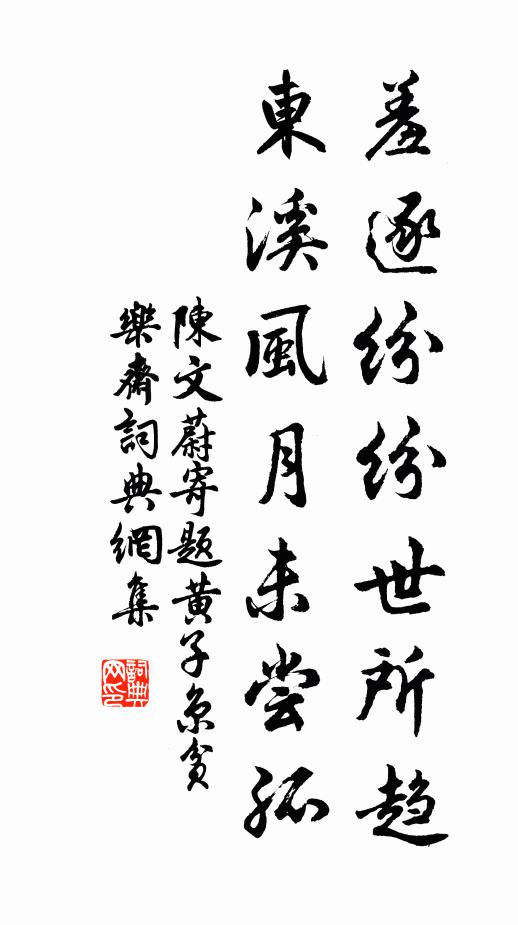 羞逐紛紛世所趨
東溪風月未嘗孤
陳文蔚寄題黃子京貧
樂齋詞典網集
詞典網印